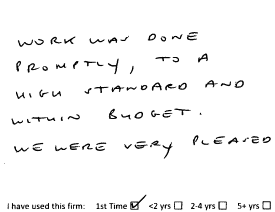 WORK WAS DONE
PROMPTLY, TO A
HIGH STANDARD AND
WITHIN BUDGET.
WE WERE VERY PLEASED
I have used this firm: 1st Time ☑ <2 yrs ☐ 2-4 yrs ☐ 5+ yrs ☐